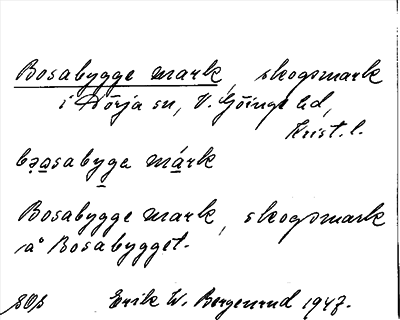 Bosabygge mark, skogsmark
i Nörja sn, V. Göinge hd,
Krist. l.
bəasabyga márk
Bosabygge mark, skogsmark
å Bosabygget.
Erik W. Bergenrud 1947.